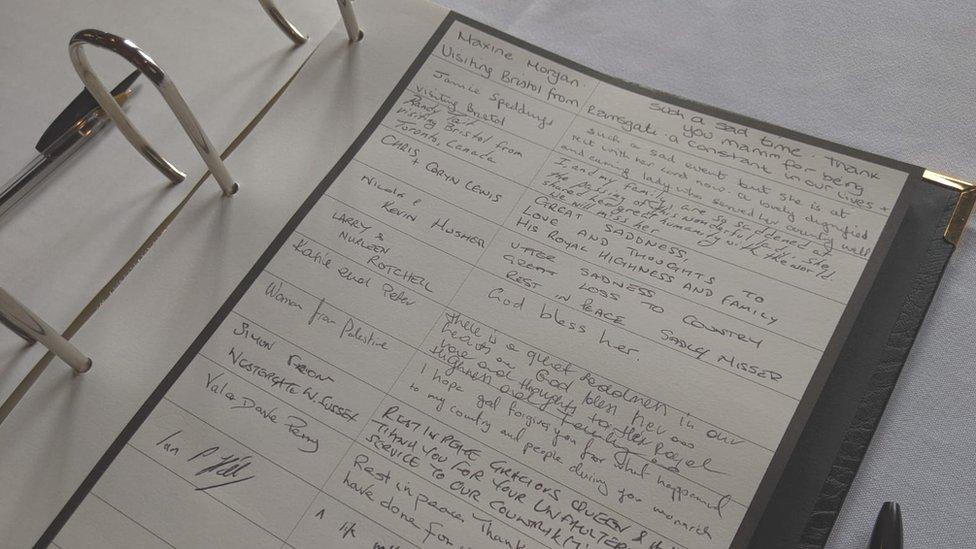 Maxine Morgan.
Visiting Bristol from Ramsgate.
Such a sad time. Thank
you mam for being
a constant in our lives
Janice Speddings
visiting Bristol
such a sad event but she is at
rest with her Lord now. a lovely dignified
and caring lady who served her country well
Randy Tait
visiting Bristol from
Toronto, Canada
I, and my family are so saddened at
the passing of this wonderful lady. She
shared her humanity with the world.
We will miss her
CHRIS
+ CORYN LEWIS
GREAT SADDNESS,
LOVE AND THOUGHTS TO
HIS ROYAL HIGHNESS AND FAMILY
Nicola &
KEVIN HUSHER
UTTER SADNESS
GREAT LOSS TO COUNTRY
REST IN PEACE SADLEY MISSER
LARRY &
NURLEEN
ROTCHELL
God bless her.
Katie and Peter
There is a great sadness in our
hearts God bless her
love and thoughts to the royal
Highness and family
Woman from Palestine
I hope god forgive you for what happened
to my country and people during your monarch
SIMON
WESTERGATE W. SUSSEX
REST IN PEACE GRACIOUS QUEEN &
THANK YOU FOR YOUR UNFAULTER
SERVICE TO OUR COUNTRY
Val & Dave Perry
Rest in peace Thank
have done for
Ian
A life